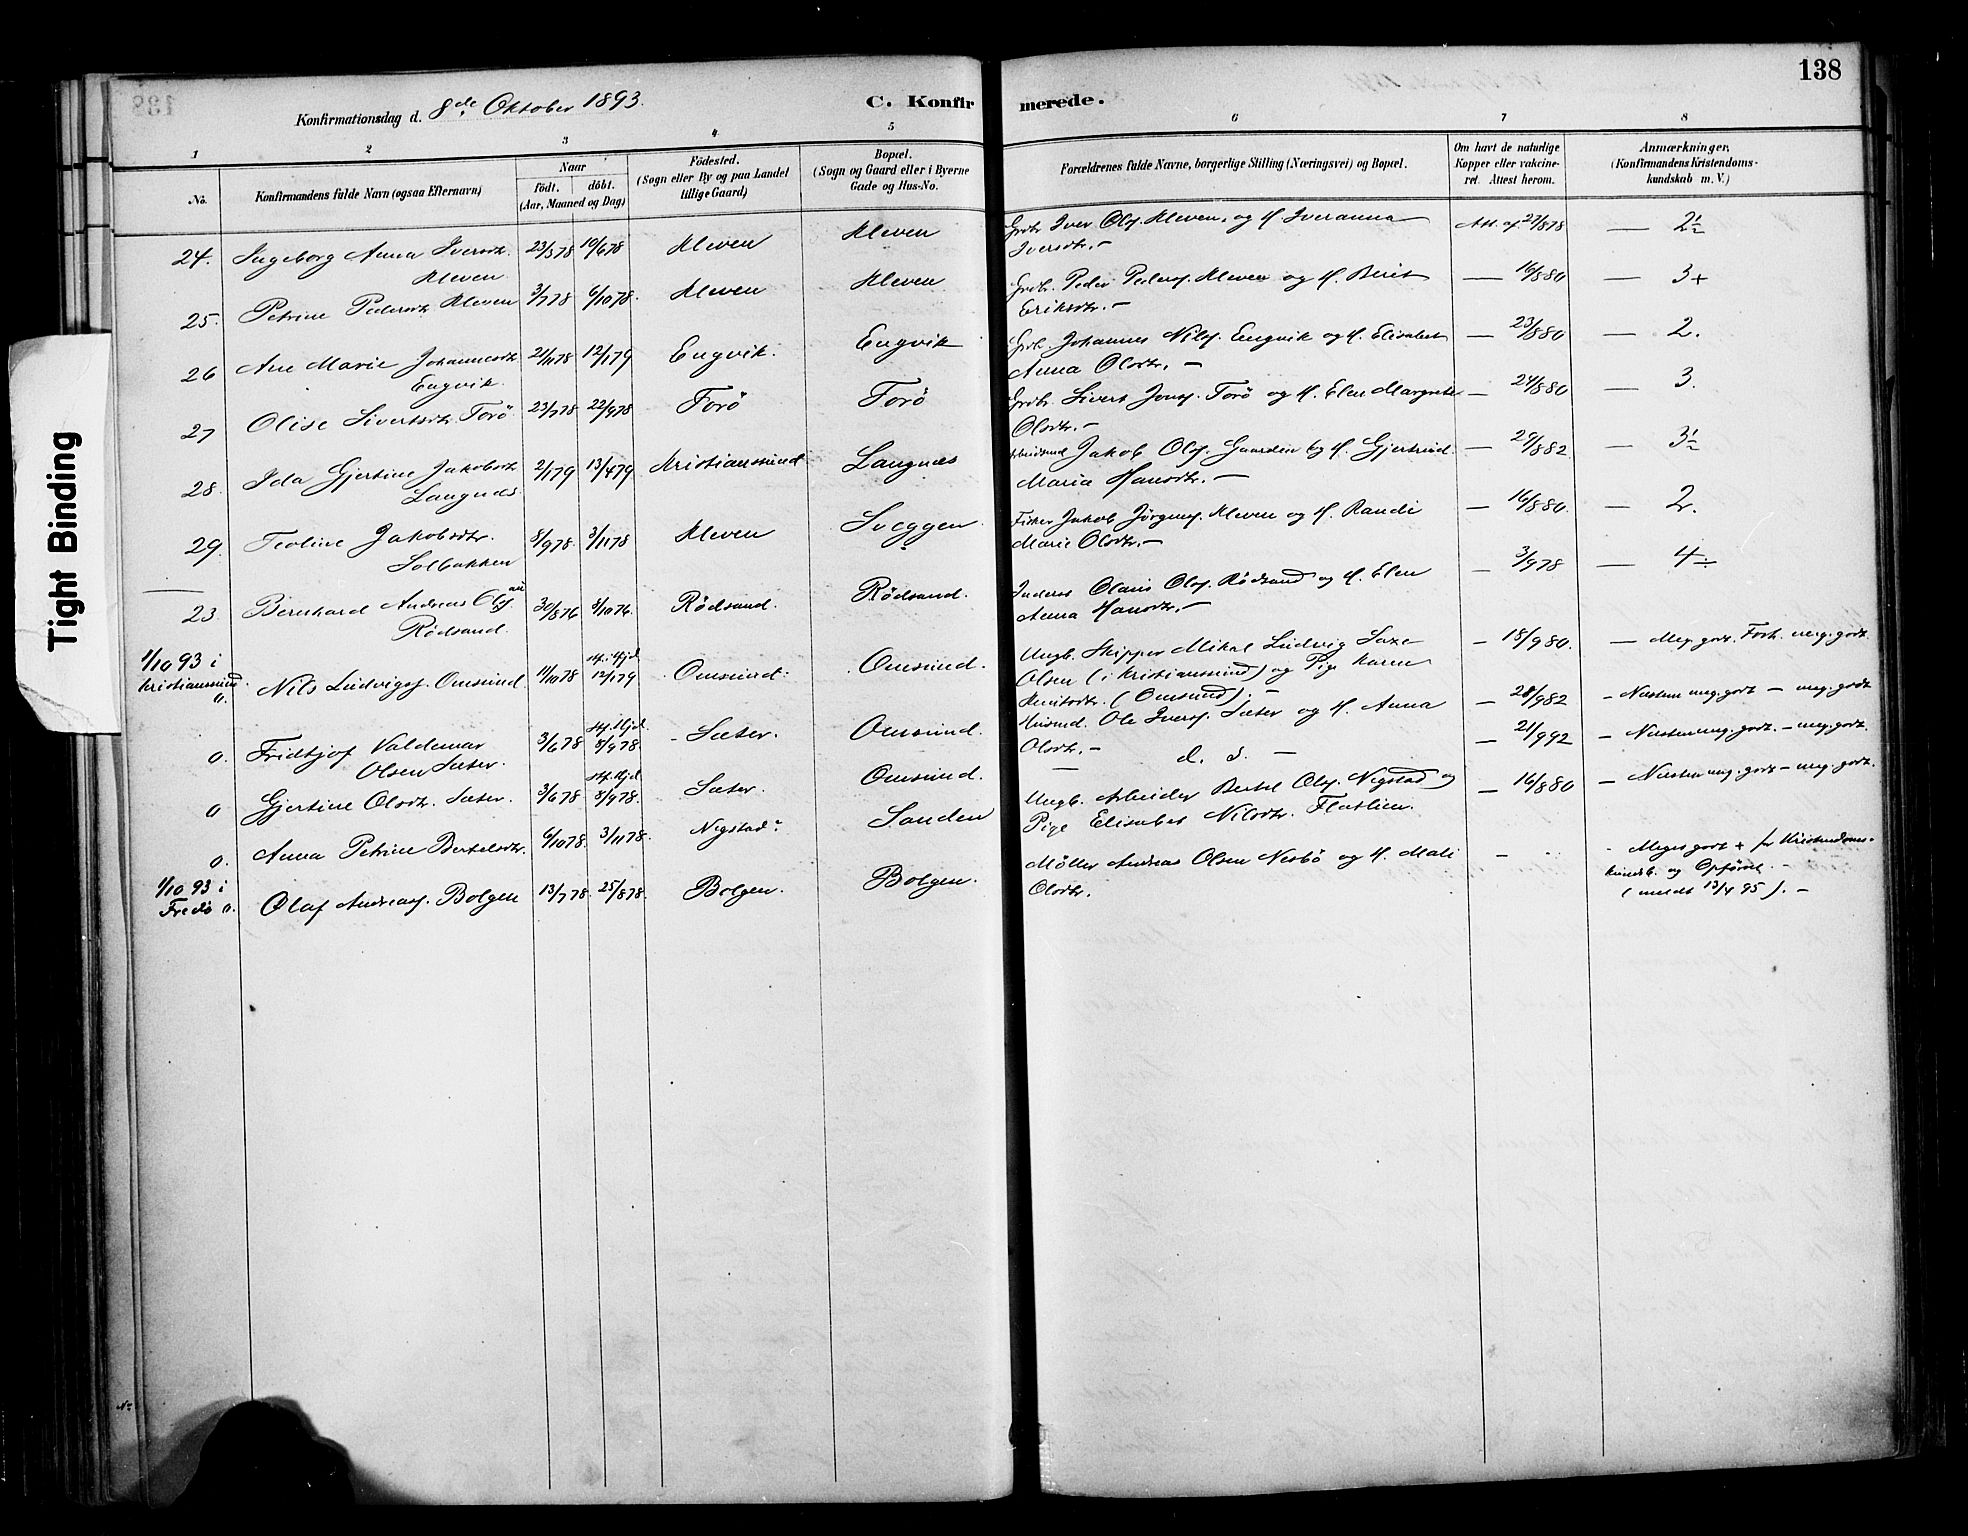 138
Konfirmationsdag d. 8de Oktober 1893.
C. Konfirmerede.
1 2 3 4 5 6 7 8
No.
Konfirmandens fulde Navn (ogsaa Efternavn)
Naar
födt. döbt.
(Aar, Maaned og Dag)
Födested.
(Sogn eller By og paa Landet
tillige Gaard)
Bopæl.
(Sogn og Gaard eller i Byerne
Gade og Hus-No.
Forældrenes fulde Navne, borgerlige Stilling (Næringsvei) og Bopæl.
Om havt de naturlige
Kopper eller vakcine-
ret. Attest herom.
Anmærkninger.
(Konfirmandens Kristendoms-
kundskab m. V.)
24. Ingeborg Anna Iversdtr. 23/5 78 10/6 78 Kleven Kleven Grdbr. Iver Olsf. Kleven, og H. Iveranna Att. af 27/8 78 — 2÷
Kleven Iversdtr. —
25. Petrine Pedersdtr Kleven 3/7 78 6/10 78. Kleven Kleven Grdb. Peder Pedersf. Kleven og H. Berit — 16/8 80 — 3+
Eriksdtr. —
26 Ane Marie Johannesdtr 21/11 78 12/1 79 Engvik. Engvik Grdb. Johannes Nilsf. Engvik og H. Elisabet — 23/8 80 — 2.
Engvik. Anna Olsdtr. —
27 Olise Sivertsdtr. Forö 23/7 78 22/9 78 Forö Forö Grdbr. Sivert Jonsf. Forö og H. Elen Margrete — 24/8 80 — 3.
Olsdtr. —
28. Ida Gjertine Jakobsdtr 2/1 79 13/4 79 Kristianssund Langnes Jakob Olsf. Gaarden og H. Gjertrud — 29/8 82 — 3÷
Langnes Maria Hansdtr. —
29. Teoline Jakobsdtr. 8/9 78. 3/11 78 Kleven Sveggen. Fisker Jakob Jörgensf. Kleven og H. Randi — 16/8 80. — 2.
Solbakken Marie Olsdtr. —
23. Bernhard Andreas Olaisf 30/8 76 8/10 76. Rödsand. Rödsand. Inderst Olaus Olsf. Rödsand og H. Elen — 3/9 78 — 4÷
Rödsand. Anna Hansdtr. —
1/10 93 i
Kristianssund.
0. Nils Ludvigsf. Omsund 11/10 78 st. Hjd. 12/1 79 Omsund. Omsund. Ungk. Skipper Mikal Ludvig Saxe — 18/9 80. — Meg. godt. Forh. meg. godt.
Olsen (i Kristianssund) og Pige Karen
Knutsdtr. (Omsund). —
0. Fridtjof Valdemar 3/6 78 st. Hjd. 8/9 78. Sæter. Omsund. Husmd. Ole Iversf. Sæter og H. Anna — 28/9 82 — Næsten meg. godt — meg. godt
Olsen Sæter. Olsdtr. —
0 Gjertine Olsdtr. Sæter. 3/6 78 st. Hjd 8/9 78. Sæter. Omsund. — d. s. — — 21/9 92 — Næsten meg. godt. — meg. godt.
0. Anna Petrine Bertelsdtr. 6/10 78. 3/11 78. Negstad. Sanden Ungk. Arbeider Bertel Olsf. Negstad og — 16/8 80 — Næsten meg. godt — meg. godt.
Pige Elisabet Nilsdtr. Flatlien.
1/10 93 i
Fredö 0. Olaf Andreasf. Bolgen 13/7 78. 25/8 78. Bolgen. Bolgen. Möller Andreas Olsen Nesbö og H. Mali — - Meget godt + for Kristendoms-
Olsdtr. kundsk. og Opförsel —
(meldt 13/4 95). —
Tight Binding